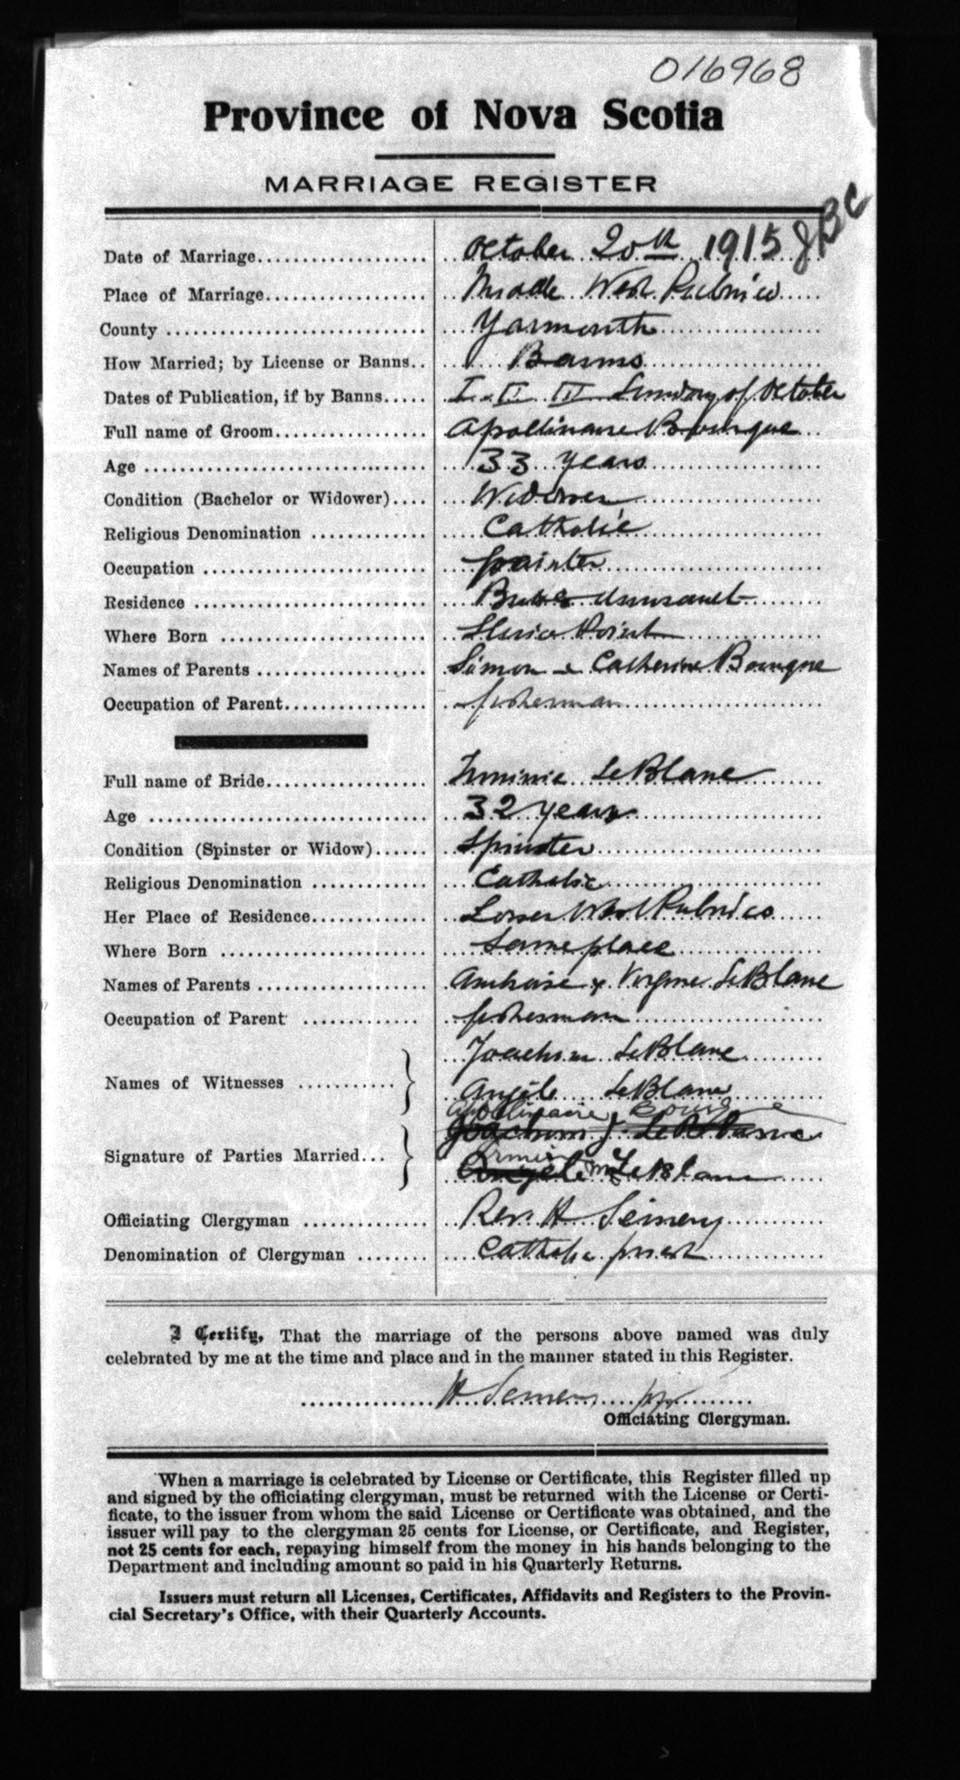 016968
Province of Nova Scotia
MARRIAGE REGISTER
JBC
Date of Marriage October 20th 1915
Place of Marriage Middle West Pubnico
County Yarmouth
How Married; by License or Banns Banns
Dates of Publication, if by Banns I II III Sunday of October
Full name of Groom Apollinaire Bourque
Age 33 years
Condition (Bachelor or Widower) Widower
Religious Denomination Catholic
Occupation painter
Residence
Where Born Sluice Point
Names of Parents Simon & Catherine Bourque
Occupation of Parent fisherman
Full name of Bride LeBlanc
Age 32 years
Condition (Spinster or Widow) Spinster
Religious Denomination Catholic
Her Place of Residence Lower West Pubnico
Where Born Same place
Names of Parents Ambroise & Virginie LeBlanc
Occupation of Parent fisherman
Joachim LeBlanc
Names of Witnesses
Angèle LeBlanc
Apollinaire Bourque
Joachim J. LeBlanc
Signature of Parties Married
LeBlanc
Officiating Clergyman Rev. H
Denomination of Clergyman Catholic priest
I Certify, That the marriage of the persons above named was duly
celebrated by me at the time and place and in the manner stated in this Register.
H
Officiating Clergyman.
When a marriage is celebrated by License or Certificate, this Register filled up
and signed by the officiating clergyman, must be returned with the License or Certi-
ficate, to the issuer from whom the said License or Certificate was obtained, and the
issuer will pay to the clergyman 25 cents for License, or Certificate, and Register,
not 25 cents for each, repaying himself from the money in his hands belonging to the
Department and including amount so paid in his Quarterly Returns.
Issuers must return all Licenses, Certificates, Affidavits and Registers to the Provin-
cial Secretary's Office, with their Quarterly Accounts.